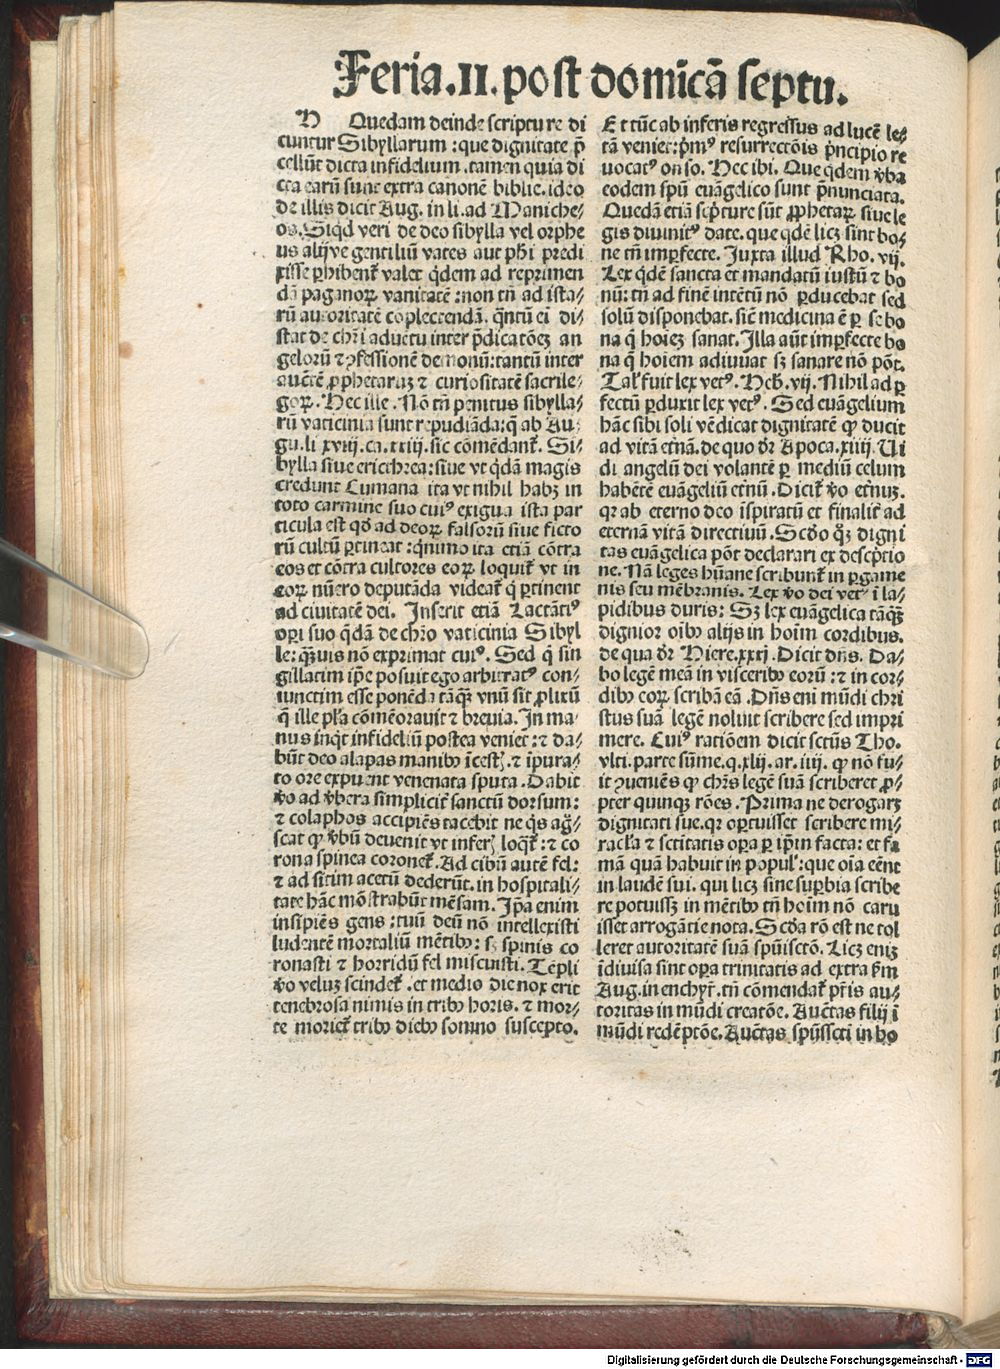 Feria.II.post domīcā septu.
D Quedam deinde scripture di
cuntur Sibyllarum : que dignitate p̄
cellūt dicta infidelium .tamen quia di
cta earū sunt extra canonē biblie. ideo
de illis dicit Aug. in li. ad Maniche-
os. Siqd veri de deo sibylla vel orphe
us alijve gentiliū vates aut phi predi
xisse ꝑhibent᷑ valet q̇dem ad reprimen
dā paganoꝝ vanitatē : non tn̄ ad ista/
rū autoritatē cōplectendā. q̄ntū ei di/
stat de chri aduētu inter p̄dicatōeꝫ an
gelorū ⁊ ꝯfessionē demonū: tantū inter
auctē ꝓphetaruꝫ ⁊ curiositatē sacrile/
goꝝ. Hec ille. Nō tn̄ penitus sibylla/
rū vaticinia sunt repudiāda: q̄ ab Au/
gu. li xviij. ca. xxiij. sic cōmēdant᷑. Si/
bylla siue ericthrea: siue vt q̇dā magis
credunt Cumana ita vt nihil habꝫ in
toto carmine suo cuiꝰ exigua ista par
ticula est qd̛ ad deoꝝ falsorū siue ficto
rū cultū ꝑtineat : q̄nimo ita etiā cōtra
eos et cōtra cultores eoꝝ loquit᷑ vt in
eoꝝ nūero deputāda videat᷑ q̄ ꝑtinent
ad ciuitatē dei. Inserit etiā Lactātiꝰ
oꝑi suo q̇dā de chr̄o vaticinia Sibyl
le: q̄ꝫuis nō exprimat cuiꝰ. Sed q̄ sin
gillatim ip̄e posuit ego arbitratꝰ con/
iunctim esse ponēda tāq̄ꝫ vnū sit ꝓlixū
q̄ ille pl̄a cōmēorauit ⁊ breuia. In ma/
nus inq̇t infideliū postea veniet : ⁊ da/
būt deo alapas manibꝰ īcestꝫ. ⁊ īpura/
to ore expuent venenata sputa. Dabit
v̄o ad v̄bera simplicit᷑ sanctū dorsum:
⁊ colaphos accipiēs tacebit ne q̇s ag̃/
scat ꝙ v̄bū deuenit vt inferꝫ loqt᷑: ⁊ co
rona spinea coronet᷑. Ad cibū autē fel:
⁊ ad sitim acetū dederūt. in hospitali/
tate hāc mōstrabūt mēsam. Ip̄a enim
insipiēs gens : tuū deū nō intellexisti
ludentē mortaliū mētibꝰ : sꝫ spinis co
ronasti ⁊ horridū fel miscuisti. Tēpli
v̄o veluꝫ scindet᷑ .et medio die nox erit
tenebrosa nimis in tribꝰ horis. ⁊ mor/
te moriet᷑ tribꝰ diebꝰ somno suscepto.
Et tūc ab inferis regressus ad lucē le/
tā veniet: p̄mꝰ resurrectōis p̄ncipio re
uocatꝰ onso. Hec ibi. Que q̇dem v̄ba
eodem spū euāgelico sunt p̄nunciata.
Quedā etiā scp̄ture sūt ꝓphetaꝝ siue le
gis diuinitꝰ date. que qdē licꝫ sint bo/
ne tn̄ imꝑfecte. Juxta illud Rho. vij.
Lex q̇dē sancta et mandatū iustū ⁊ bo
nū: tn̄ ad finē intētū nō ꝑducebat sed
solū disponebat. sīc medicina ē ꝑ se bo
na q̄ hoieꝫ sanat. Illa aūt imꝑfecte bo
na q̄ hoiem adiuuat sꝫ sanare nō pōt.
Talꝭ fuit lex vetꝰ. Heb̄. vij. Nihil ad ꝑ
fectū ꝑduxit lex vetꝰ. Sed euāgelium
hāc sibi soli vēdicat dignitatē ꝙ ducit
ad vitā etnā. de quo dr̄ Apoca. xiiij. Ui
di angelū dei volantē ꝑ mediū celum
habētē euāgeliū etnū .Dicit᷑ v̄o etnuꝫ.
qꝛ ab eterno deo īspiratū et finalit᷑ ad
eternā vitā directiuū .Scd̛o q̄ꝫ digni
tas euāgelica pōt declarari ex descp̄tio
ne. Nā leges hūane scribunt᷑ in ꝑgame
nis seu mēbranis. Lex v̄o dei vetꝰ ī la/
pidibus duris: Sꝫ lex euāgelica tāq̄ꝫ
dignior oībꝰ alijs in hoīm cordibus.
de qua dr̄ Hiere. xxxj. Dicit dn̄s. Da/
bo legē meā in visceribꝰ eorū : ⁊ in cor/
dibꝰ eoꝝ scribā eā . Dn̄s eni mūdi chri
stus suā legē noluit scribere sed impri
mere. Cuiꝰ ratiōem dicit sctūs Tho.
vlti. parte sūme. q. xlij. ar. iiij. ꝙ nō fu/
it ꝯueniēs ꝙ chr̄s legē suā scriberet ꝓ/
pter quinqꝫ rōes. Prima ne derogarꝫ
dignitati sue. qꝛ oꝑtuisset scribere mi/
racl̄a ⁊ sctitatis oꝑa ꝑ ip̄m facta: et fa
mā quā habuit in populꝰ: que oīa eēnt
in laudē sui. qui licꝫ sine suꝑbia scribe
re potuissꝫ in mētibꝰ tn̄ hoīm nō caru
isset arrogātie nota. Scd̛a rō est ne tol
leret autoritatē suā spūisctō. Licꝫ enīꝫ
īdiuisa sint oꝑa trinitatis ad extra ẜm
Aug. in enchyr̄. tn̄ cōmendat᷑ pr̄is au/
toritas in mūdi creatōe. Auctas filij ī
mūdi redēptōe. Auctas spūssctī in bo
Digitalisierung gefördert durch die Deutsche Forschungsgemeinschaft - DFG